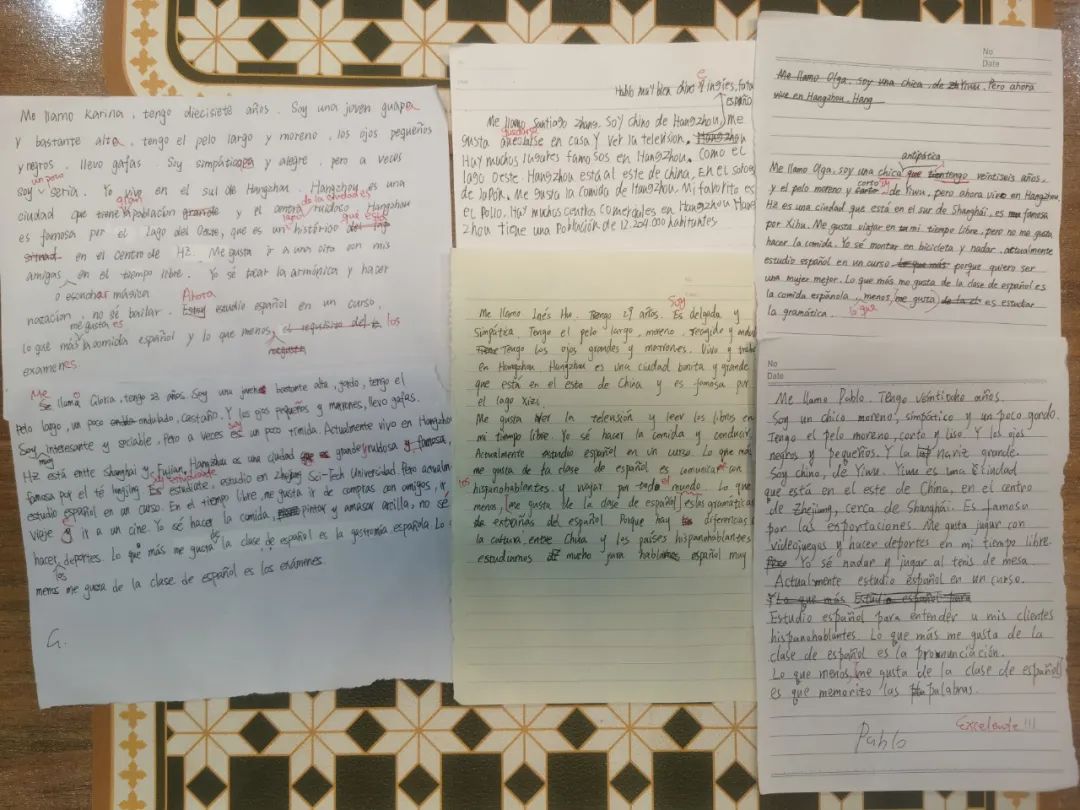 Me llamo Karina, tengo diecisiete años. Soy una joven guapa
y bastante alta, tengo el pelo largo y moreno, los ojos pequeños
y negros, llevo gafas. Soy simpática y alegre, pero a veces
un poco
soy seria. Yo vivo en el sur de Hangzhou. Hangzhou es una
gran
ciudad que tiene población grande y el centro ruidoso. Hangzhou
de la ciudad es
lugar que está
es famosa por el Lago del Oeste, que es un histórico del
en el centro de HZ. Me gusta ir a una cita con mis
amigas en el tiempo libre. Yo sé tocar la armónica y hacer
o escuchar música
natación, no sé bailar. Ahora estudio español en un curso,
me gusta es
lo que más la comidia español y lo que menos, el requisito de los
exámenes.
Me
Se llamo Gloria, tengo 23 años. Soy una bastante alta, gordo, tengo el
pelo largo, un poco ondulado, castaño. Y los ojos pequeños y marrones, llevo gafas.
Soy interesante y sociable. Pero a veces soy un poco tímida. Actualmente vivo en Hangzhou
muy
HZ está entre Shanghai y Fujian. Hangzhou es una ciudad grande, ruidosa y famosa,
soy estudiante
famosa por el té longjing. Es estudiate, estudio en Zhejiang Sci-Tech Universidad Pero actualm
estudio español en un curso. En el tiempo libre, me gusta ir de compras con amigos, ir
viaje y ir a un cine. Yo sé hacer la comida, pintar y amasar arcilla, no sé
es
hacer deportes. Lo que más me gusta la clase de español es la gastromía española. Lo
los
menos me gusta de la clase de español es los exámenes.
G.
Hablo muy bien chino e inglés,
español
Me llamo Santiago zhang. Soy chino de Hangzhou, me
quedarse
gusta en casa y ver la televisión.
Hay muchos lugares famosos en Hangzhou. Como el
lago Oeste. Hangzhou está al este de china, en el
de Japón. Me gusta la comida de Hangzhou. Mi favorito es
el pollo. Hay muchos centos comerciales en Hangzhou Hang
zhou tiene una población de 12.204.000 habitantes
Soy
Me llamo Inés Hu. Tengo 27 años. Es delgada y
simpática. Tengo el pelo largo, moreno, recogido y
Tengo los ojos grandes y marrones. Vivo y
en Hangzhou Hangzhou es una ciudad bonita y grande
que está en el este de China y es famosa por
el lago Xizi.
Me gusta ver la televsión y leer los libros en
mi tiempo libre. Yo sé hacer la comida y conducir.
Actualmente estudio español en un curso. Lo que más
me gusta de la clase de español es comunicar con
los
hispanohablantes y viajar por todo el mundo. Lo que
menos, me gusta de la clase de español es las gramáticas
de extrañas del español Porque hay diferencias
la cultura entre Chila y los países hispanohablantes
estudiamos mucho para hablar español muy
No
Date
Me llamo Olga. soy una chica de Yiwu. Pero ahora
vive en Hangzhou. Hang
antipática
Me llamo Olga, soy una chica que tengo veintiseis años,
corto soy
y el pelo moreno y de Yiwu, pero ahora vivo en Hangzhou
Hz es una ciudad que está en el sur de Shanghai, es famosa
por Xihu. Me gusta viajar en mi tiempo libre, pero no me gusta
hacer la comida. Yo sé montar en bicicleta y nadar. actualmente
estudio español en un curso porque quiero ser
una mujer mejor. Lo que más me gusta de la clase de español es
la comida española, menos, me gusta es estudar
lo que
la gramática.
No
Date
Me llamo Pablo. Tengo veintiocho años.
Soy un chico moreno, simpático y un poco gordo.
Tengo el pelo moreno, corto y liso. Y los ojos
negros y pequeños. Y la nariz grande.
Soy chino, de Yiwu. Yiwu es una ciudad
que está en el este de China, en el centro
de Zhejiang, cerca de Shanghai. Es famosa
por las exportaciones. Me gusta jugar con
videojuegos y hacer deportes en mi tiempo libre.
Yo sé nadar y jugar al tenis de mesa
Actualmente estudio español en un curso.
Y Lo que más Estudio español para
Estudio español para entender a mis clientes
hispanohablantes. Lo que más me gusta de la
clase de español es la pronunciación.
Lo que menos, me gusta de la clase de español
es que memorizo las palabras.
Excelente!!!
Pablo